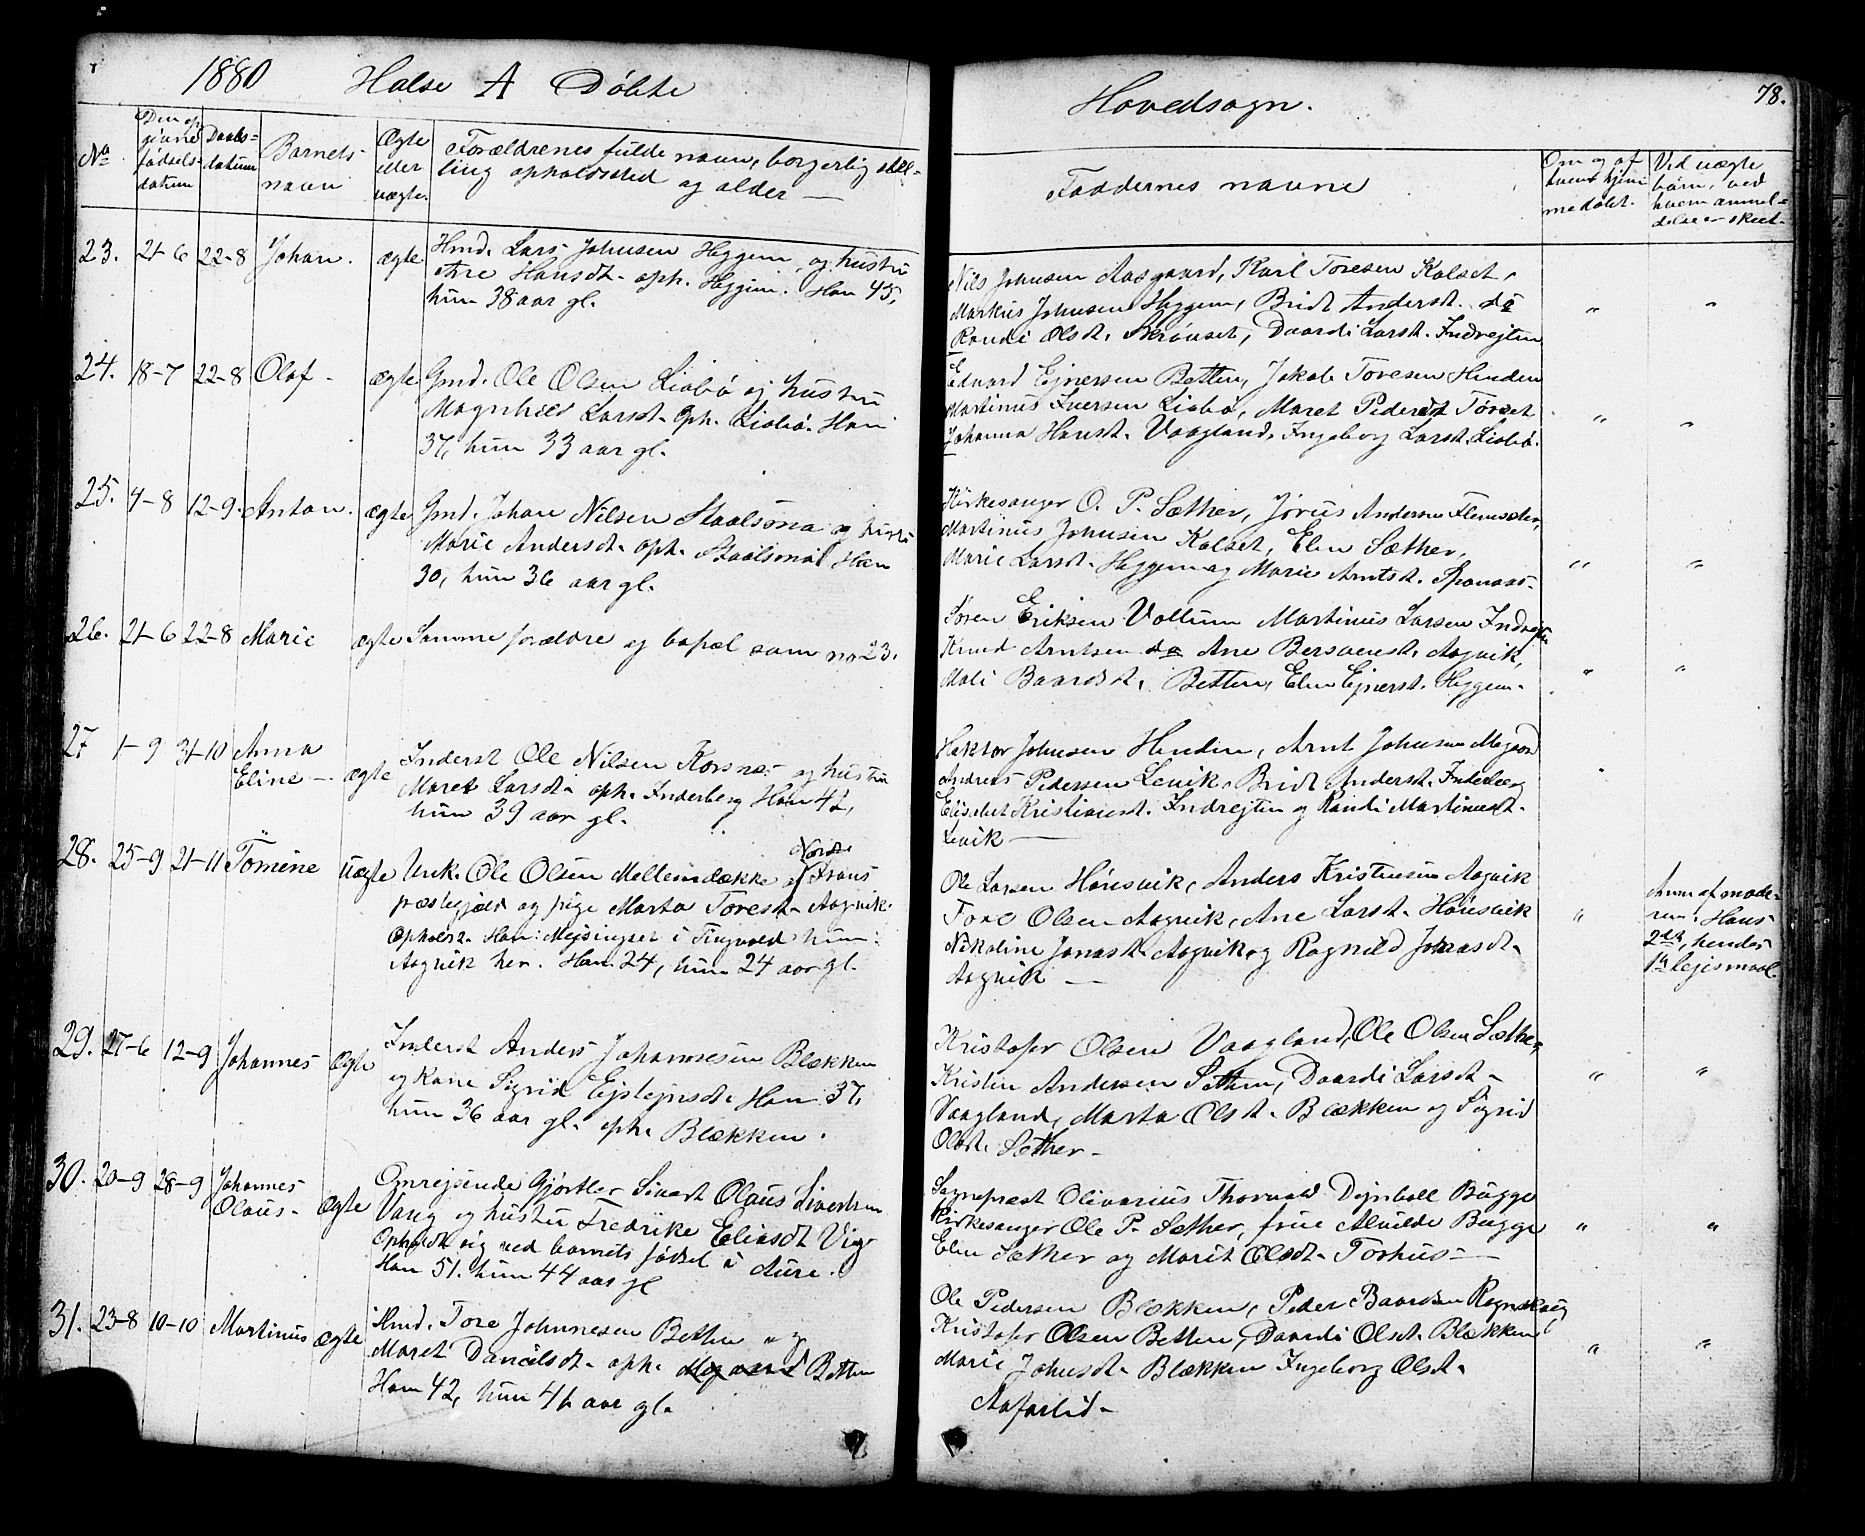 1880 Halse A Döbte
No
Den op
givne
födsels-
datum
Daabs-
datum
Barnets
navn
Ægte
eller
uægte.
Forældrenes fulde navn, borgerlig stil-
ling opholdssted og alder —
23. 21-6 22-8 Johan. ægte
Hmd. Lars Johnsen Heggem, og hustru
Ane Hansdt. oph. Heggem. Han 45,
hun 38 aar gl.
24. 18-7 22-8 Olaf - ægte
Gmd. Ole Olsen Lisbö og hustru
Magnhild Larsdt. Oph. Lisbö. Han
37, hun 33 aar gl.
25. 4-8 12-9 Anton. ægte
Gmd. Johan Nilsen Staalsmo og
Marie Andersdt. oph. Staalsmo Han
30, hun 36 aar gl.
26. 21-6 22-8 Marie ægte
Samme forældre og bopæl som no 23.
27 1-9 31-10 Anna
Eline - ægte
Inderst Ole Nilsen Korsnæs og hustru
Maret Larsdt. oph. Inderberg Han 42,
hun 39 aar gl.
28. 25-9 21-11 Tomine uægte
Unk. Ole Olsen Mellemdække
præstegjæld og pige Marta Toresdt. Aagvik.
Opholdt. Han: Mejsingset i Tingvold hun:
Aagvik her. Han 24, hun 24 aar gl.
29. 27-6 12-9 Johannes Ægte
Inderst Anders Johannesen Blækken
og Kone Sigrid Ejstejnsdt. Han 37,
hun 36 aar gl. oph. Blækken.
30. 20-9 28-9 Johannes
Olaus - Ægte
Omrejsende Gjörtler Sivert Olaus Sivertsen
Vang og hustru Fredrike Eliasdt Vig
Opholdt sig ved barnets födsel i Aure.
Han 51. hun 44 aar gl
31. 23-8 10-10 Martinus ægte
Hmd. Tore Johnnesen Betten og
Maret Danielsdt. oph. Betten
Han 42, hun 41 aar gl.
Hovedsogn.
78.
Faddernes navne
Om og af
hvem hjem-
medöbt.
Ved uægte
börn, ved
hvem anmel-
delse er skeet.
Nils Johnsen Aasgaard, Karl Toresen Kalset,
Markus Johnsen Heggem, Brit Andersdt. do
Randi Olsdt. Skrövset, Daardi Larsdt. Indrejten
" "
Eduard Ejnersen Betten, Jakob Toresen Henden
Martinus Iversen Lisbö, Maret Pedersdt Torset
Johanna Hansdt. Vaagland, Ingeborg Larsdt. Lisbö.
" "
Kirkesanger O. P. Sæther, Anderssen
Martinus Johnsen Kalset, Elen Sæther,
Marie Larsdt. Heggem og Marie Arntsdt.
" "
Sören Eriksen Vollum Martinus Larsen Indrejten
Knud Arntsen do Ane Bersvensdt. Aagvik,
Mali Baardsdt. Betten, Elen Ejnersdt. Heggem.
" "
Hektor Johnsen Henden, Arnt Johnsen Megaard
Andreas Pedersen Levik, Brit Andersdt. Inderberg
Elisabet Kristiansdt. Indrejten og Randi Martinusdt.
Levik —
Ole Larsen Hönsvik, Anders Kristensen Aagvik
Tore Olsen Aagvik, Ane Larsdt. Hönsvik
Nikoline Jonasdt. Aagvik og Ragnild Jonasdt.
Aagvik —
"
Anm af mode-
ren. Hans
2det, hendes
1te lejermaal.
Kristofer Olsen Vaagland, Ole Olsen Sæther,
Kristen Andersen Sæther, Daardi Larsdt.
Vaagland, Marta Olsdt. Blækken og Sigrid
Olsdt. Sæther -
" "
Sogneprest Olivarius Thorvald Dejnboll Bugge
Kirkesanger Ole P. Sæther, frue Alvilde Bugge
Elen Sæther og Marit Olsdt. Torhus —
" "
Ole Pedersen Blækken, Peder Baardsen
Kristofer Olsen Betten, Daardi Olsdt. Blækken
Marie Johnsdt. Blækken Ingeborg Olsdt.
" "